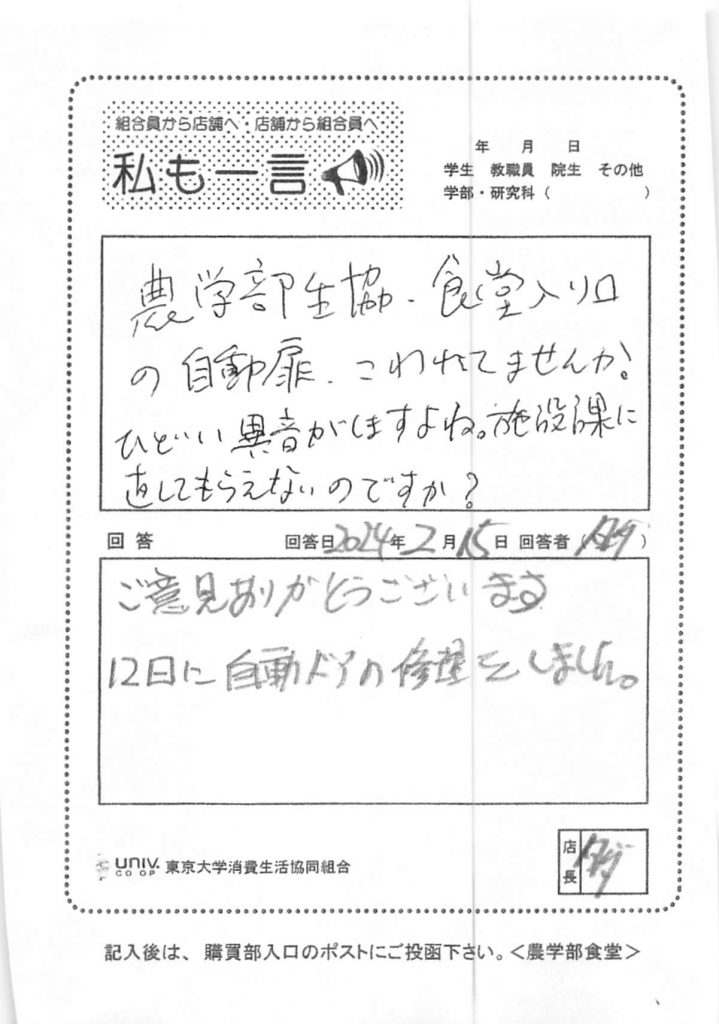 組合員から店舗へ・店舗から組合員へ
私も一言
年 月 日
学生 教職員 院生 その他
学部・研究科（ ）
農学部生協・食堂入り口
の自動扉、こわれてませんか。
ひどい異音がしますよね。施設課に
直してもらえないのですか？
回答 回答日2024年2月15日 回答者（ ）
ご意見ありがとうございます
12日に自動ドアの修理をしました。
UNIV. CO-OP 東京大学消費生活協同組合
店長
記入後は、購買部入口のポストにご投函下さい。＜農学部食堂＞